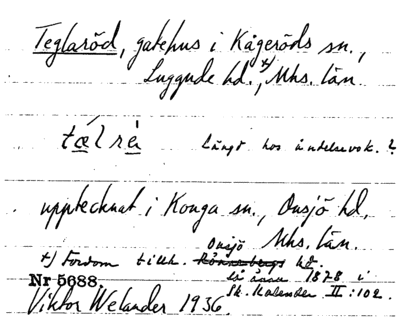 Teglaröd, gatehus i Kågeröds sn.,
Luggude hd.,x) Mhs. län
tǽlrè̱ Långt hos ändelsevok. ?
upptecknat i Konga sn., Onsjö hd.
Mhs. län.
x) Fordom tillh. Rönnebergs Onsjö hd.
så ännu 1878 i
Nr 5688 Sk. Kalender II:102.
Viktor Welander 1936.